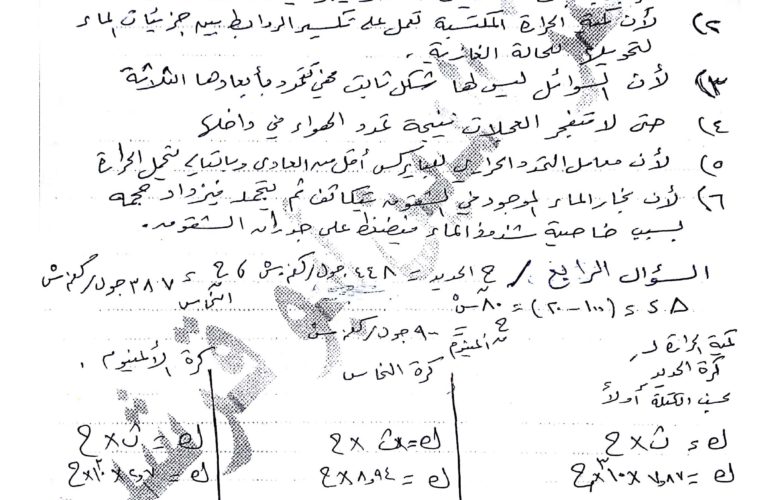 ٢) لأن كمية الحرارة المكتسبة تعمل على تكسير الروابط بين جزيئات الماء
لتحويلها للحالة الغازية .
٣) لأن السوائل ليس لها شكل ثابت فهي تتمدد بأبعادها الثلاثة
٤) حتى لا تنفجر العجلات نتيجة تمدد الهواء في داخلها
٥) لأن معامل التمدد الحراري للبايركس أقل من العادي وبالتالي يتحمل الحرارة
٦) لأن بخار الماء الموجود في الشقوق يتكاثف ثم يتجمد فيزداد حجمه
بسبب خاصية شذوذ الماء فيضغط على جدران الشقوق .
السؤال الرابع / ح الحديد = ٤٤٨ جول/كغم.س ، ح النحاس = ٣٨٧ جول/كغم.س
Δ د = (١٠٠ - ٢٠) = ٨٠ س°
ح ألمنيوم = ٩٠٠ جول/كغم.س
كمية الحرارة لـ
كرة الحديد
كرة النحاس
كرة الألمنيوم .
نحسب الكتلة أولاً
ك = ث × ح
ك = ث × ح
ك = ث × ح
ك = ٧,٨٧ × ١٠^٣ × ح
ك = ٨,٩٤ × ح
ك = ٢,٧ × ١٠^٣ × ح